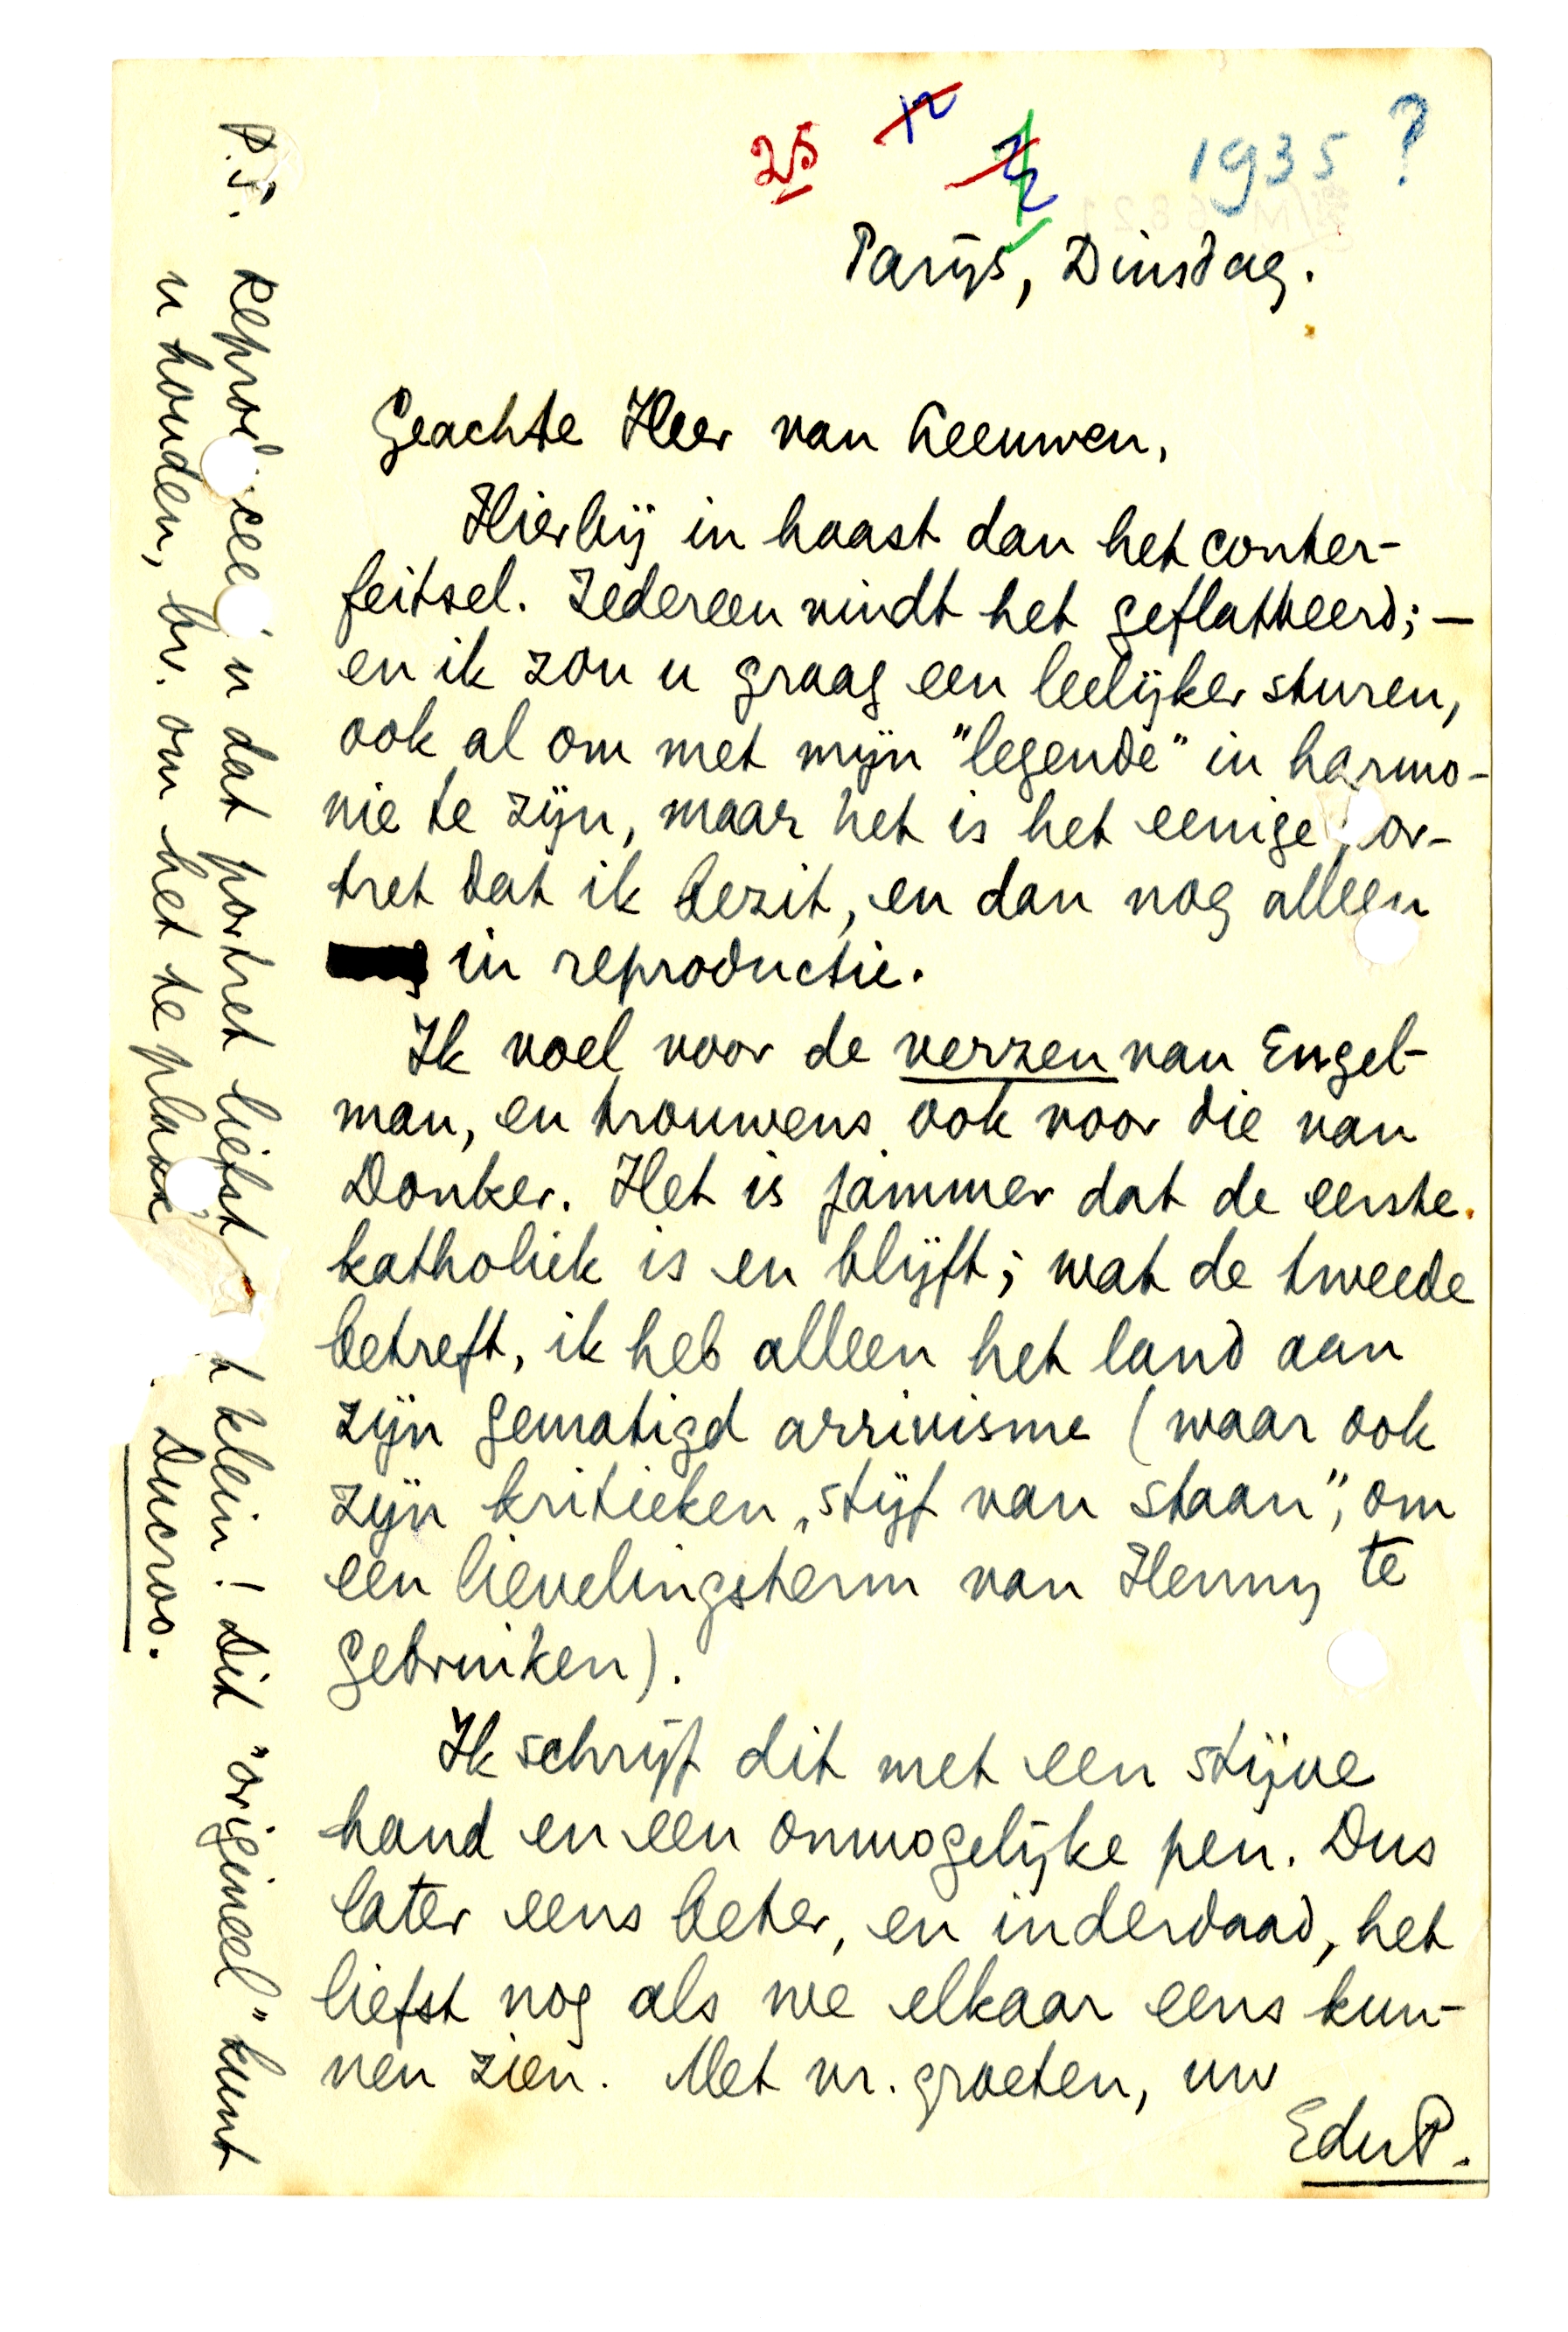 25 12 22 1935 ?
Parijs, Dinsdag.
Geachte Heer van Leeuwen,
Hierbij in haast dan het conter-
feitsel. Iedereen vindt het geflatteerd; —
en ik zou u graag een leelijker sturen,
ook al om met mijn "legende" in harmo-
nie te zijn, maar het is het eenige por-
tret dat ik bezit, en dan nog alleen
in reproductie.
Ik voel voor de verzen van Engel-
man, en trouwens ook voor die van
Donker. Het is jammer dat de eerste
katholiek is en blijft; wat de tweede
betreft, ik heb alleen het land aan
zijn gematigd arrivisme (waar ook
zijn kritieken „stijf van staan", om
een lievelingsterm van Henny te
gebruiken).
Ik schrijf dit met een stijve
hand en een onmogelijke pen. Dus
later eens beter, en inderdaad, het
liefst nog als we elkaar eens kun-
nen zien. Met vr. groeten, uw
EduP.
P.S. Reproduceer u dat portret liefst klein! Dit "origineel" kunt
u houden, bv. om het te plakken Ducroo.